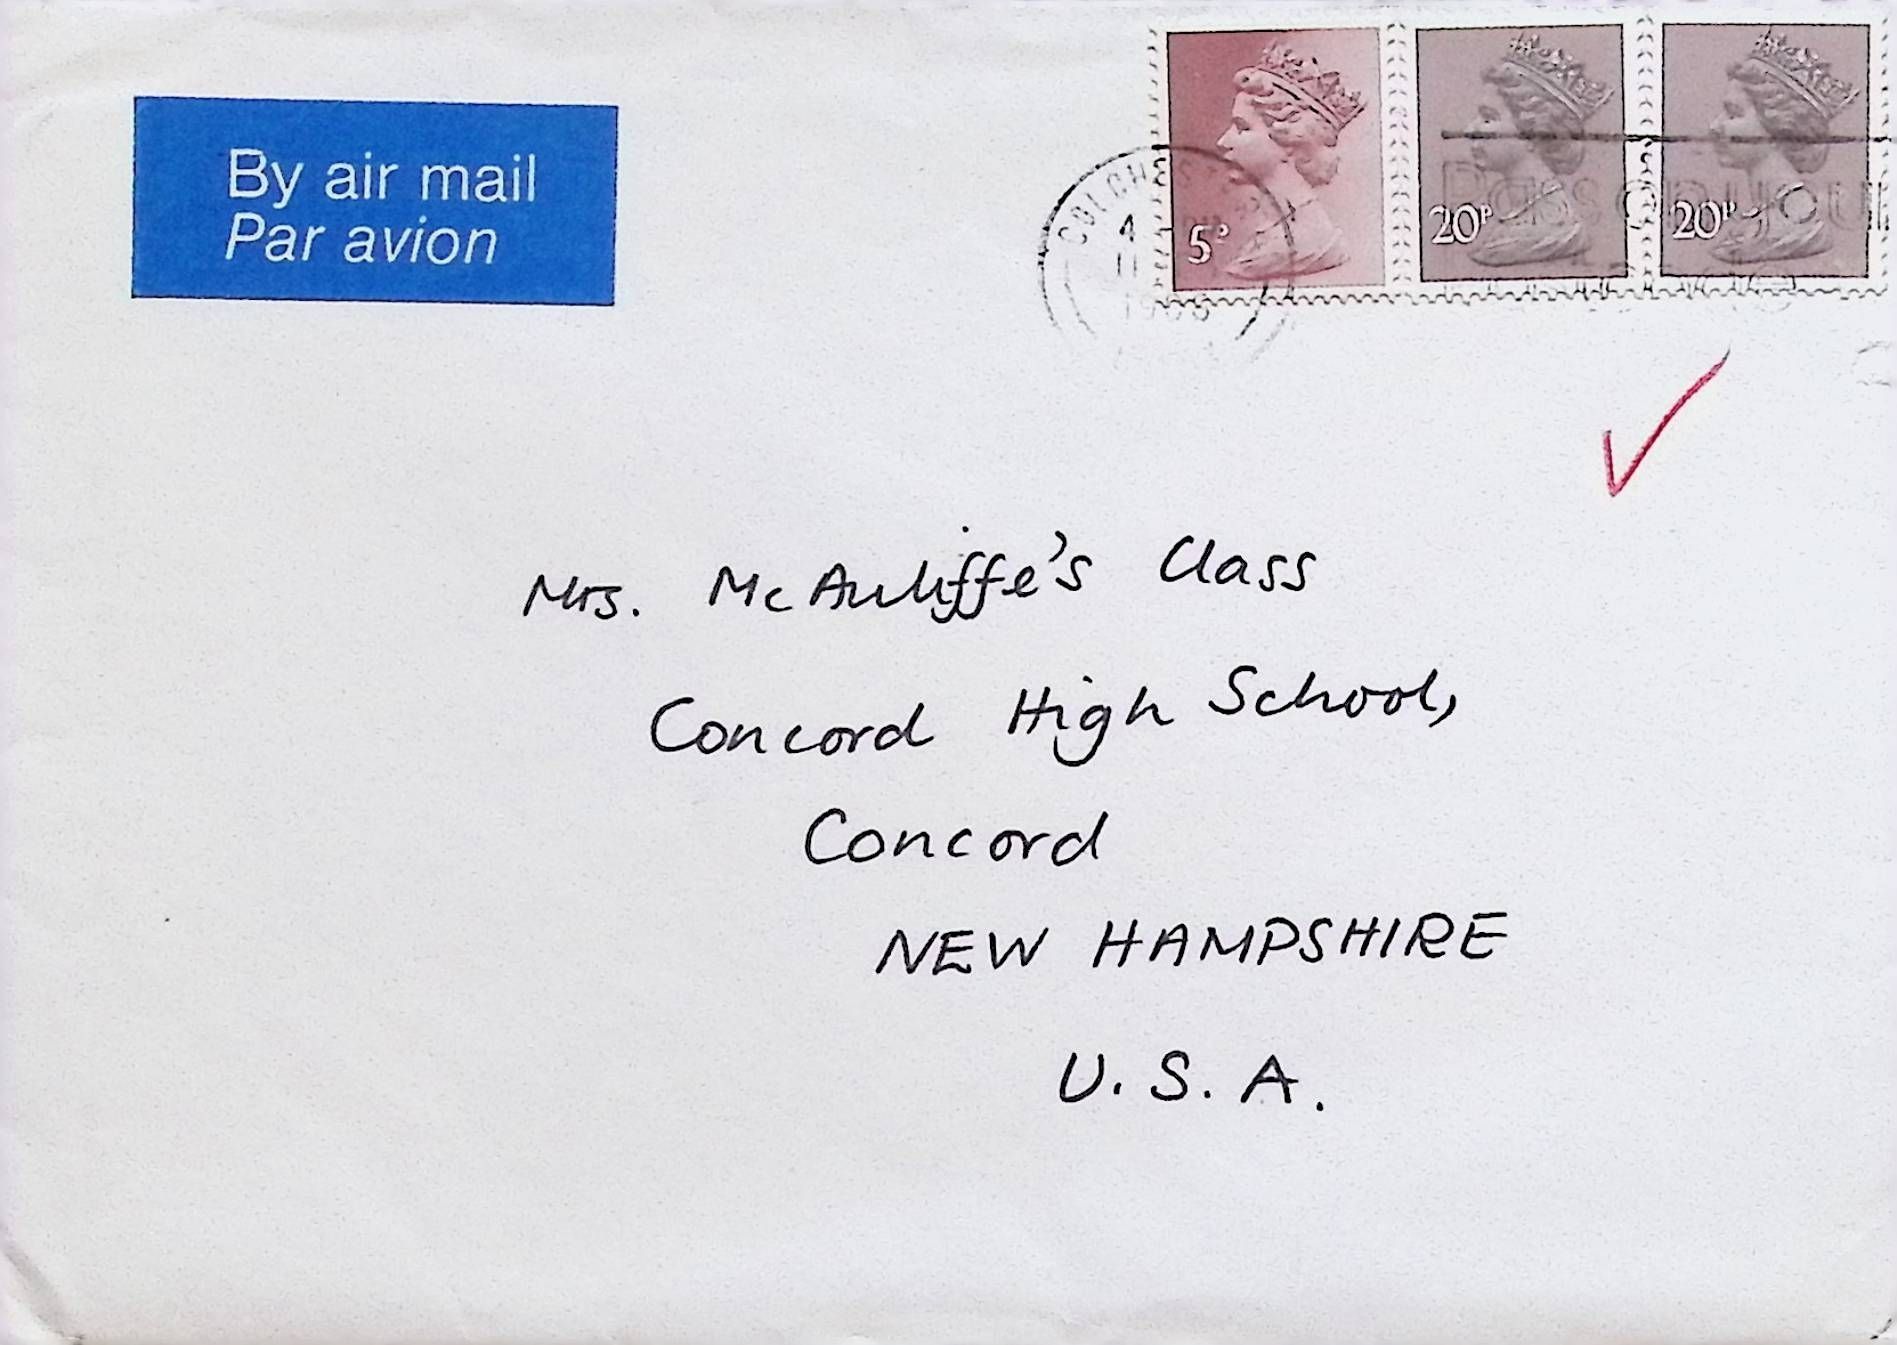 By air mail
Par avion
5P
20P
20P
COLCHESTER
Pass on your
Mrs. McAuliffe's Class
Concord High School,
Concord
NEW HAMPSHIRE
U.S.A.